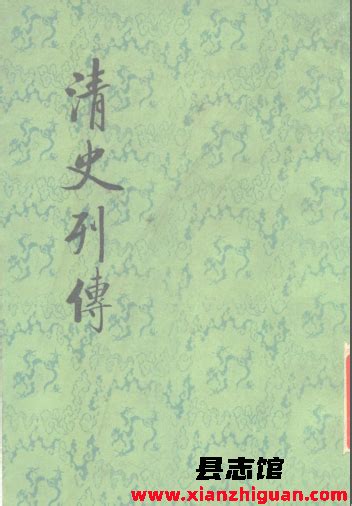 清史列傳
县志馆
www.xianzhiguan.com